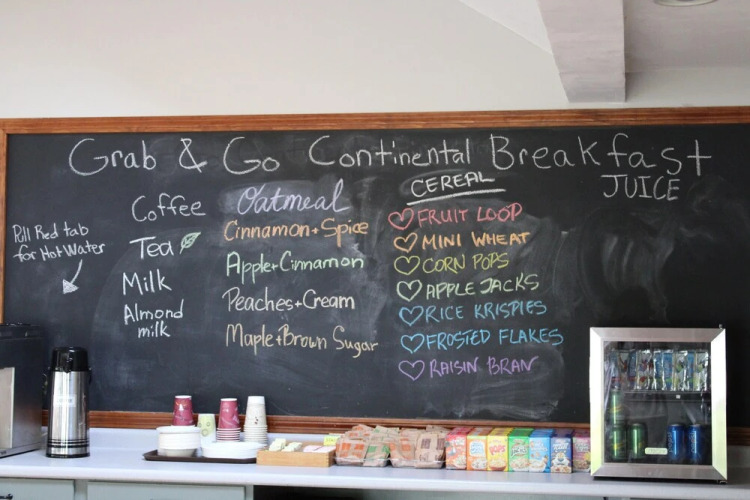 Grab & Go Continental Breakfast
Pull Red tab
for Hot Water
Coffee
Tea
Milk
Almond
milk
Oatmeal
Cinnamon + Spice
Apple + Cinnamon
Peaches + Cream
Maple + Brown Sugar
CEREAL
FRUIT LOOP
MINI WHEAT
CORN POPS
APPLE JACKS
RICE KRISPIES
FROSTED FLAKES
RAISIN BRAN
JUICE